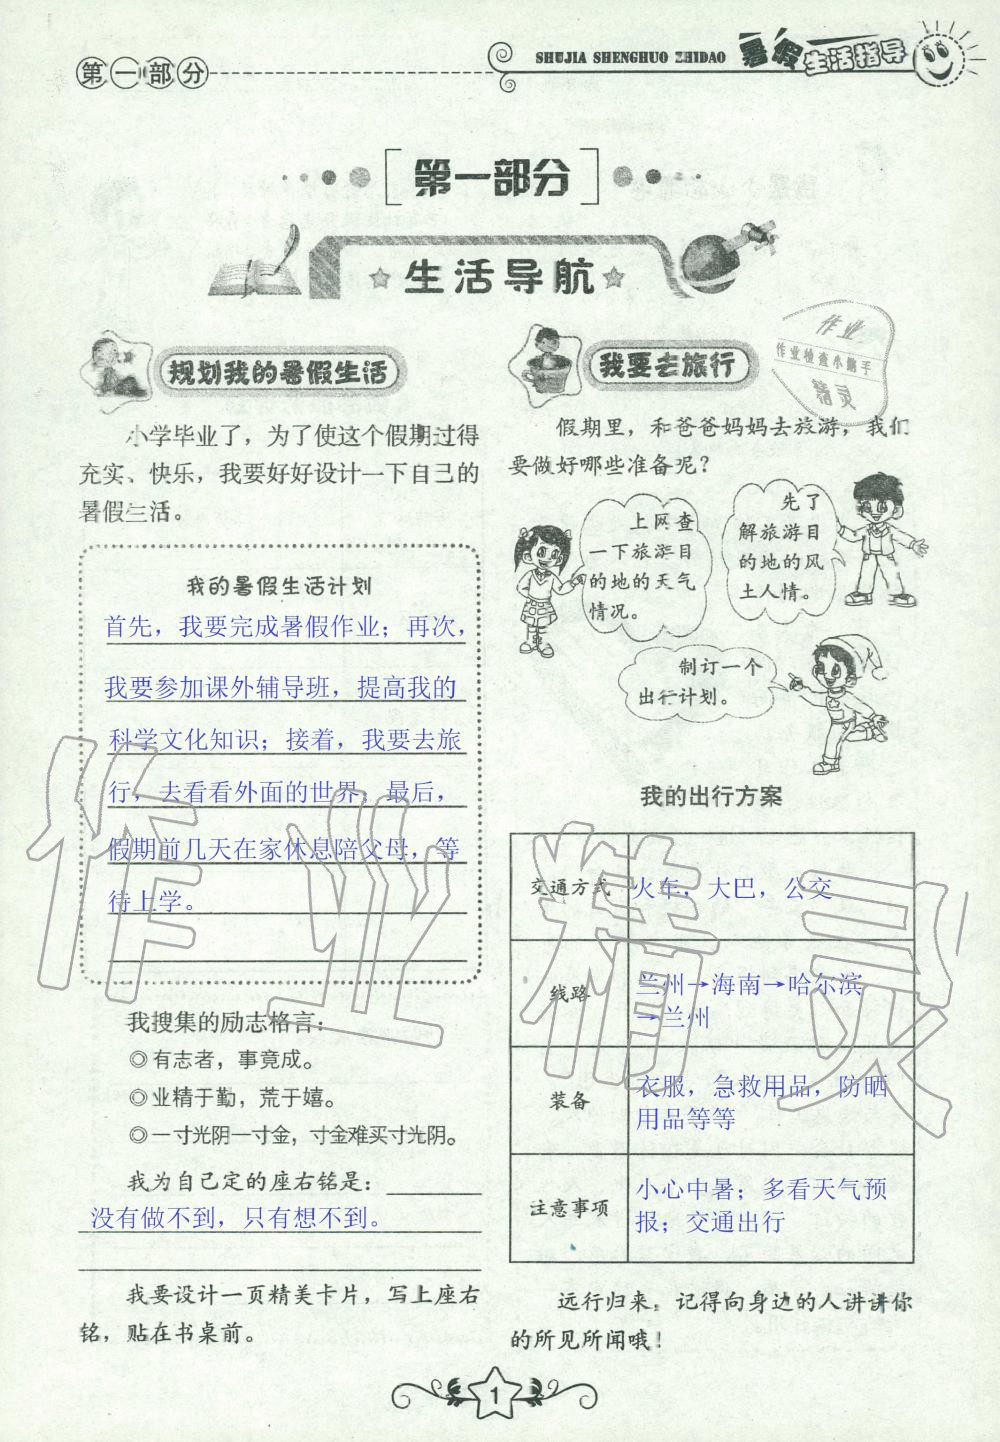 第一部分
SHUJIA SHENGHUO ZHIDAO
暑假生活指导
第一部分
生活导航
规划我的暑假生活
小学毕业了，为了使这个假期过得
充实、快乐，我要好好设计一下自己的
暑假生活。
我的暑假生活计划
首先，我要完成暑假作业；再次，
我要参加课外辅导班，提高我的
科学文化知识；接着，我要去旅
行，去看看外面的世界，最后，
假期前几天在家休息陪父母，等
待上学。
我搜集的励志格言：
◎有志者，事竟成。
◎业精于勤，荒于嬉。
◎一寸光阴一寸金，寸金难买寸光阴。
我为自己定的座右铭是：
没有做不到，只有想不到。
我要设计一页精美卡片，写上座右
铭，贴在书桌前。
我要去旅行
作业
作业检查小助手
精灵
假期里，和爸爸妈妈去旅游，我们
要做好哪些准备呢？
上网查
一下旅游目
的地的天气
情况。
先了
解旅游目
的地的风
土人情。
制订一个
出行计划。
我的出行方案
交通方式 火车，大巴，公交
线路 兰州→海南→哈尔滨
→兰州
装备 衣服，急救用品，防晒
用品等等
注意事项 小心中暑；多看天气预
报；交通出行
远行归来，记得向身边的人讲讲你
的所见所闻哦！
作业精灵
1